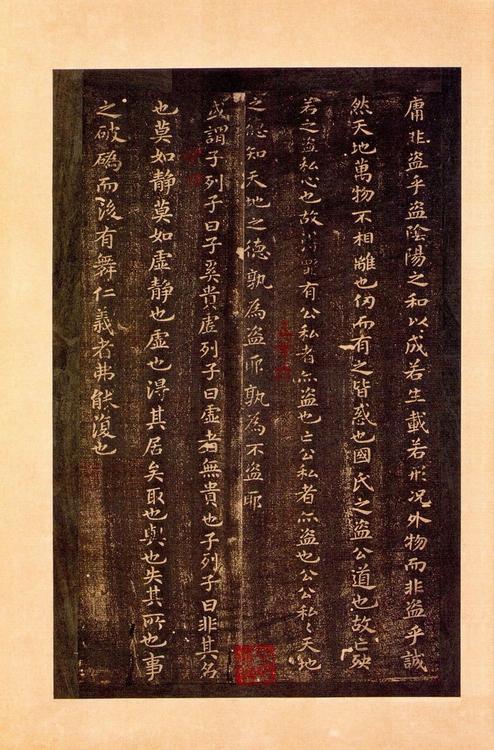 庸非盗乎盗陰陽之和以成若生載若形况外物而非盗乎誠
然天地萬物不相離也仞而有之皆惑也國氏之盗公道也故亡殃
若之盗私心也故得罪有公私者亦盗也亡公私者亦盗也公公私〻天地
之德知天地之德孰為盗耶孰為不盗耶
或謂子列子曰子奚貴虛列子曰虛者無貴也子列子曰非其名
也莫如静莫如虛静也虛也得其居矣取也與也失其所也事
之破䃣而後有舞仁義者弗能復也